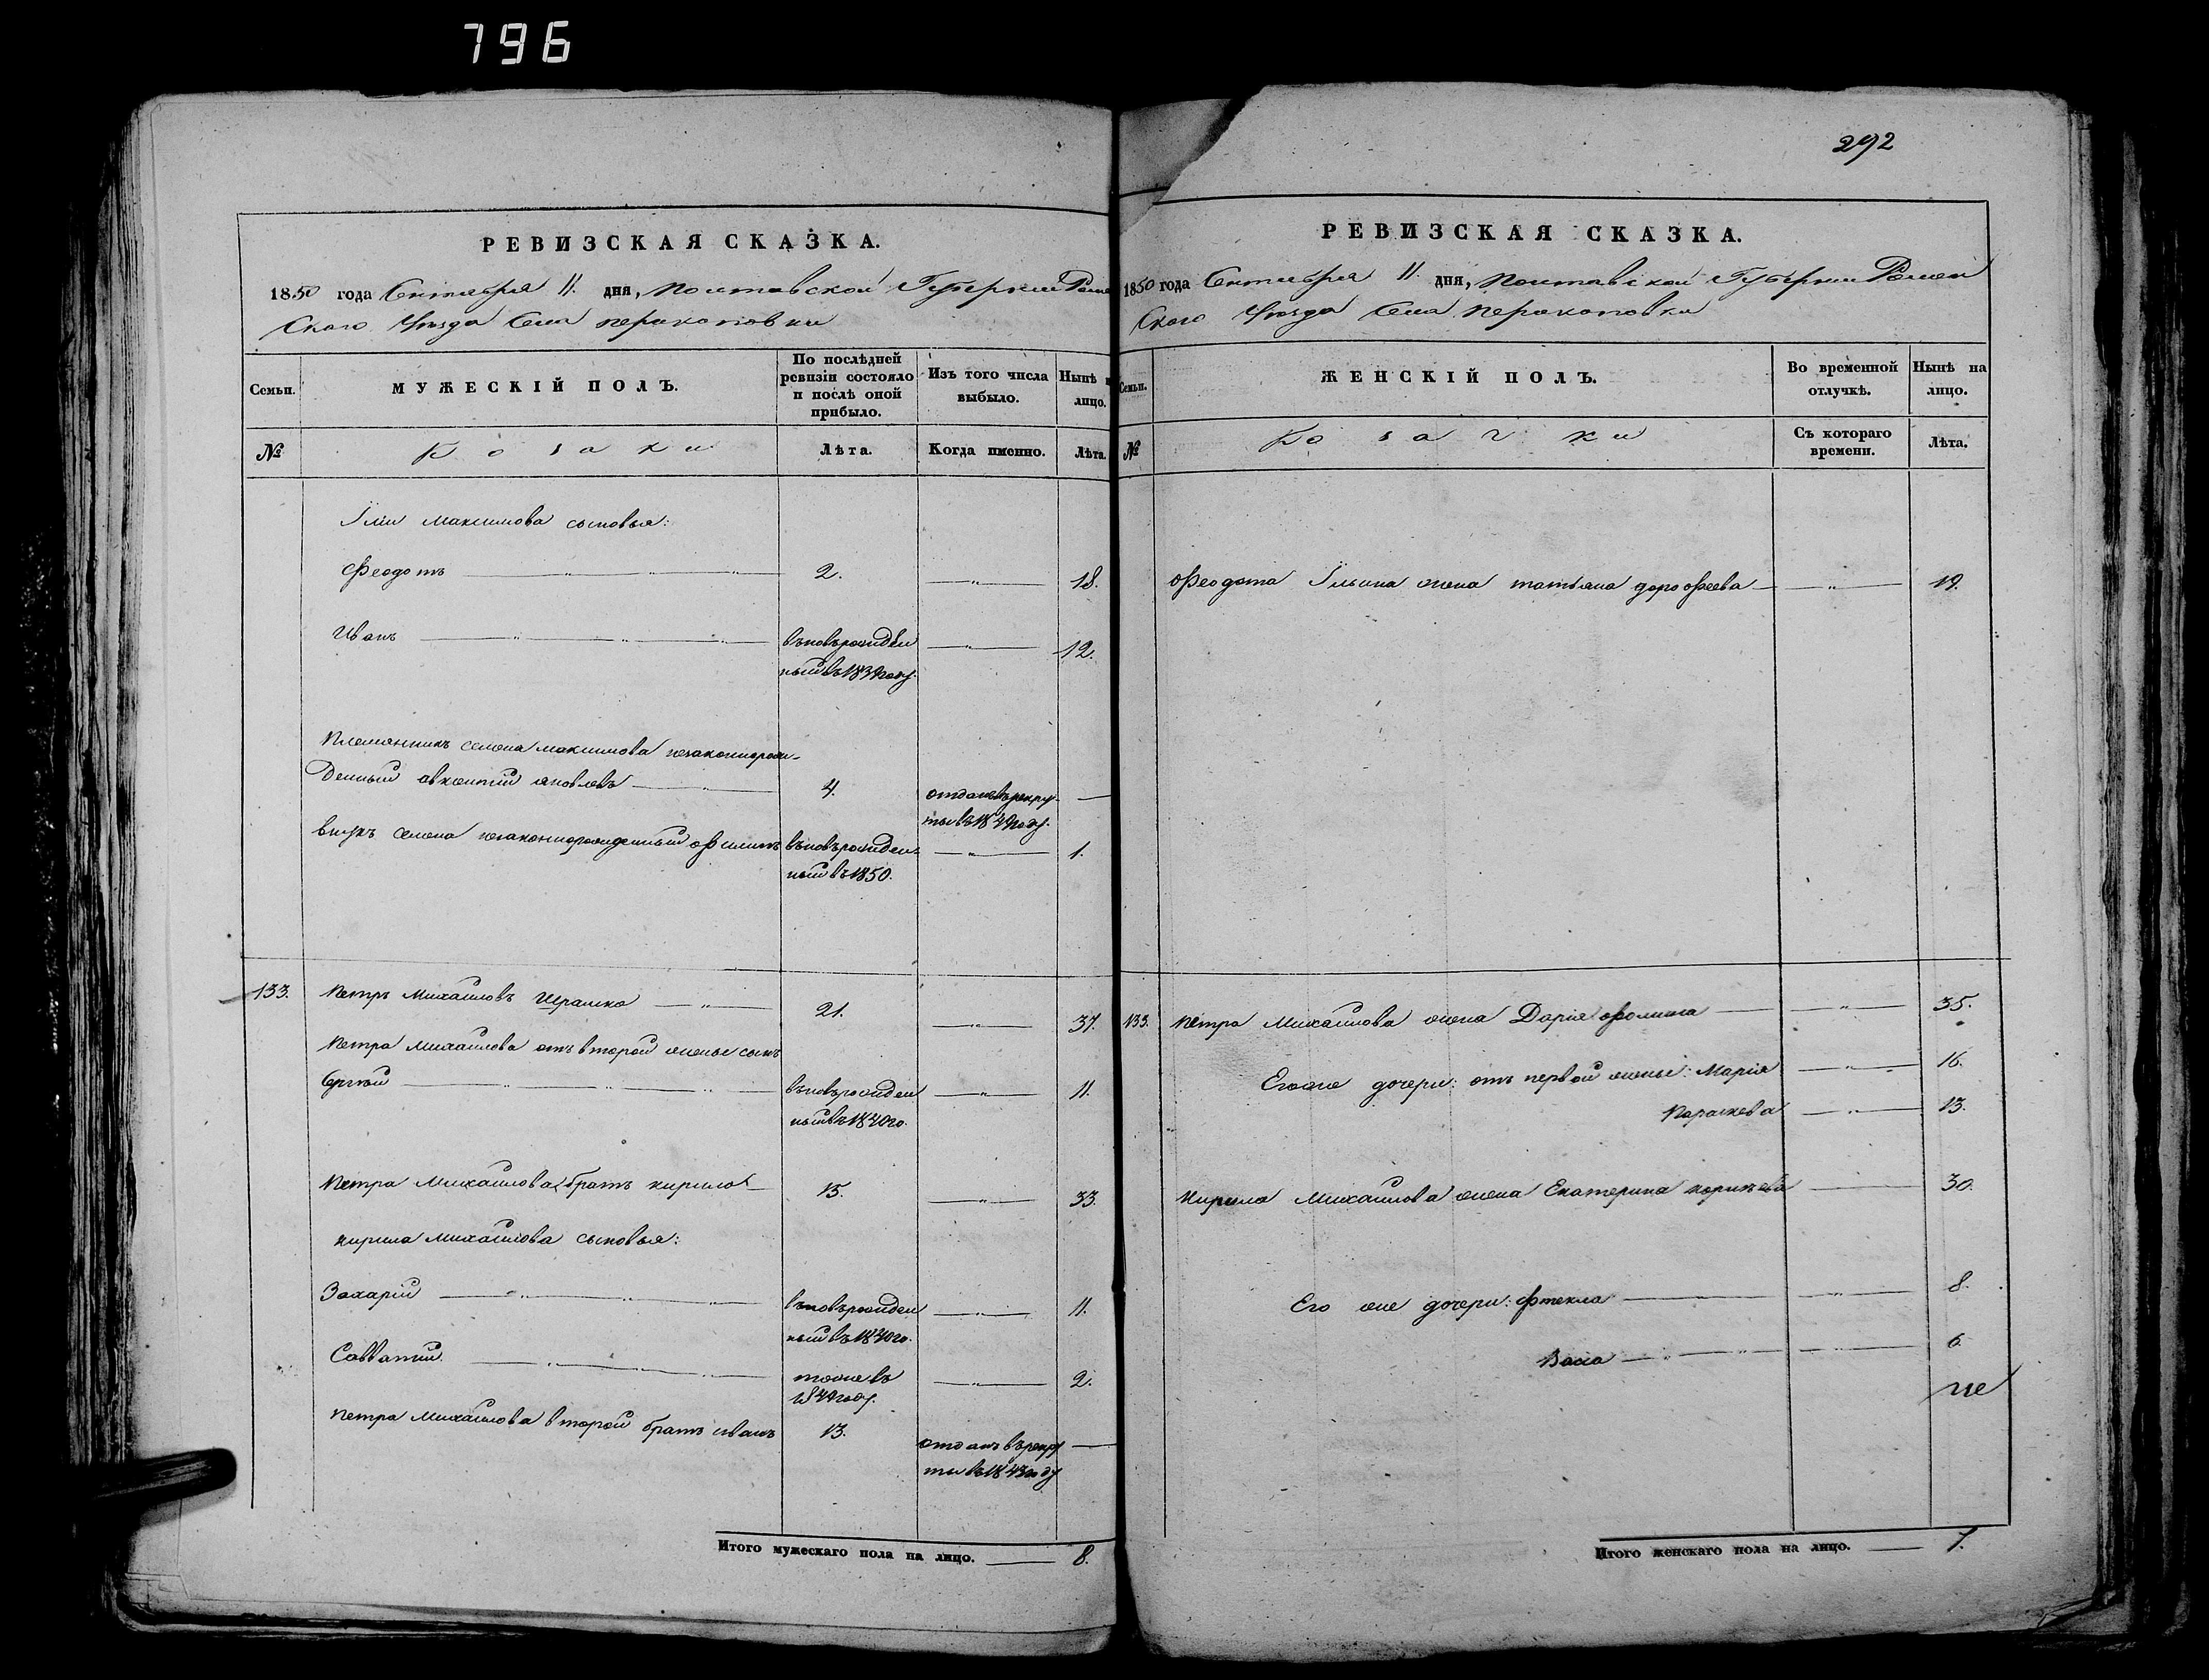 796
РЕВИЗСКАЯ СКАЗКА.
1850 года Октября 11. дня, Полтавской Губернии Ромен
Ского Уезда Села перекоповки
Семьи.
МУЖЕСКІЙ ПОЛЪ.
По послѣдней ревизіи состояло и послѣ оной прибыло.
Изъ того числа выбыло.
Нынѣ
лицо.
№
Козаки
Лѣта.
Когда именно.
Лѣта.
Іли максимова сыновья:
Феодотъ 2. 18.
Иванъ вновърожден 12.
ный въ 1839 году.
Племянникъ семена максимова незаконнорож-
денный авксентій яковлевъ 4. отданъ в рекру-
ты въ 1849 году.
внукъ семена незаконнорожденный филипъ вновърожден- 1.
ный въ 1850.
133. Петръ Михайловъ 21. 37.
Петра Михайлова отъ второй жены сынъ
Сергѣй вновърожден 11.
ный въ 1840 го.
Петра Михайлова братъ кирило 15. 33.
кирила михайлова сыновья:
Захарій вновърожден 11.
ный въ 1840 го.
Савватий тоже въ 2.
1849 году.
петра Михайлова второй братъ иванъ 13. отданъ в рекру
ты въ 1843 году
Итого мужескаго пола на лицо. 8.
292
РЕВИЗСКАЯ СКАЗКА.
1850 года Октября 11. дня, Полтавской Губернии Ромен
Ского Уезда Села перекоповки
Семьи.
ЖЕНСКІЙ ПОЛЪ.
Во временной отлучкѣ.
Нынѣ на лицо.
№
Козачки
Съ котораго времени.
Лѣта.
Феодота Ільина жена татьяна дорофеева 19.
133. Петра Михайлова жена Дарія фомина 35.
Егоже дочери: отъ первой жены: Марія 16.
Параскева 13.
Кирила Михайлова жена Екатерина 30.
Его же дочери: Фтекла 8.
Васса 6.
Итого женскаго пола на лицо. 7.